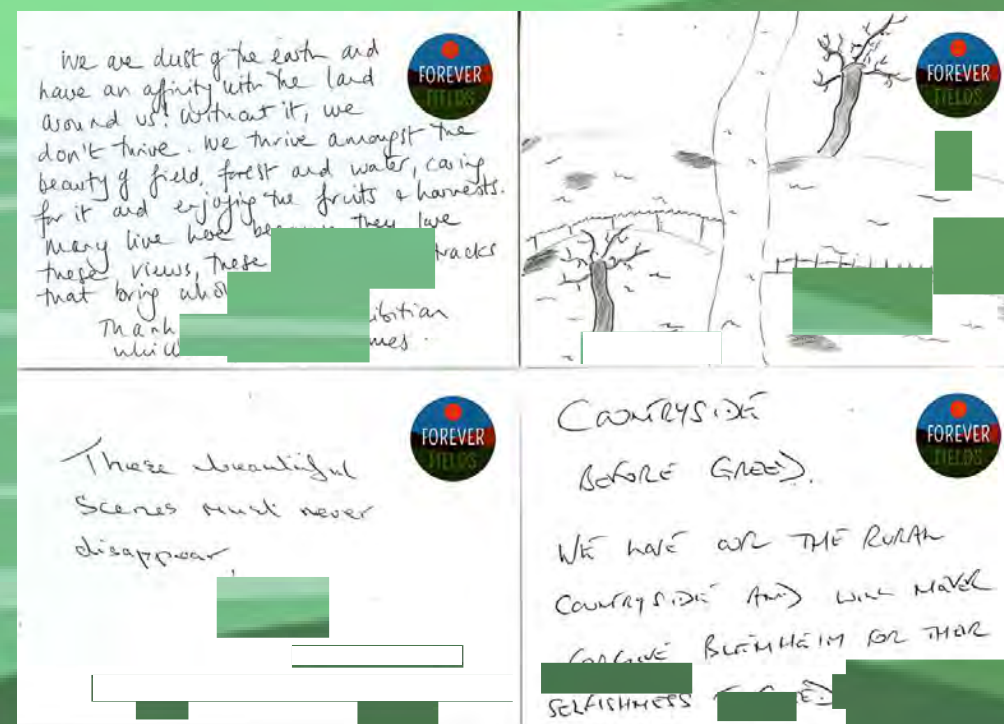 We are dust of the earth and
have an affinity with the land
around us! Without it, we
don't thrive. We thrive amongst the
beauty of field, forest and water, caring
for it and enjoying the fruits & harvests.
Many live here they love
these views, these tracks
that bring
Thank

FOREVER
FIELDS
FOREVER
FIELDS
These beautiful
Scenes must never
disappear.
FOREVER
FIELDS
COUNTRYSIDE
BEFORE GREED.
WE HAVE OUR THE RURAL
COUNTRYSIDE AND WILL NEVER
FORGIVE BLENHEIM FOR THEIR
SELFISHNESS
FOREVER
FIELDS